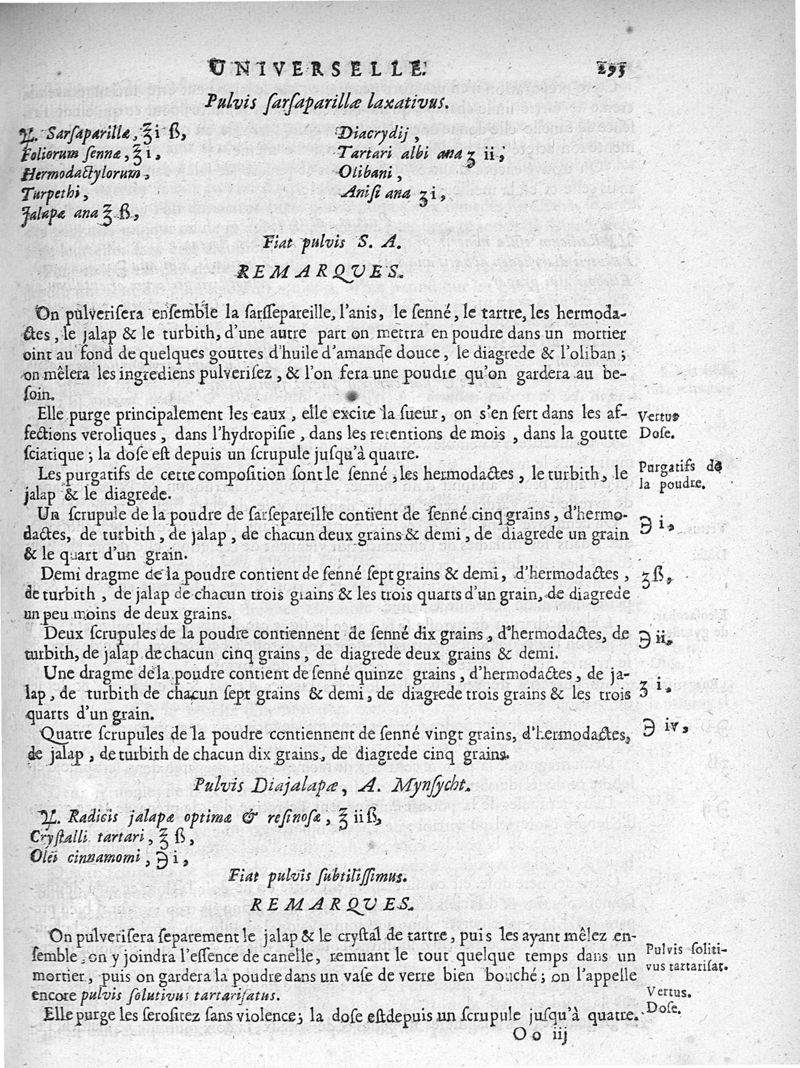 UNIVERSELLE. 295
Pulvis sarsaparillæ laxativus.
℞. Sarsaparillæ, ℥i ß,
Foliorum sennæ, ℥i,
Hermodactylorum,
Turpethi,
Jalapæ ana ℥ ß,
Diacrydij,
Tartari albi ana ʒ ii,
Olibani,
Anisi ana ʒi,
Fiat pulvis S. A.
REMARQUES.
On pulverisera ensemble la sarssepareille, l'anis, le senné, le tartre, les hermoda-
ctes, le jalap & le turbith, d'une autre part on mettra en poudre dans un mortier
oint au fond de quelques gouttes d'huile d'amande douce, le diagrede & l'oliban;
on mêlera les ingrediens pulverisez, & l'on fera une poudre qu'on gardera au be-
soin.
Elle purge principalement les eaux, elle excite la sueur, on s'en sert dans les af-
fections veroliques, dans l'hydropisie, dans les retentions de mois, dans la goutte
sciatique; la dose est depuis un scrupule jusqu'à quatre.
Vertus
Dose.
Les purgatifs de cette composition sont le senné, les hermodactes, le turbith, le
jalap & le diagrede.
Purgatifs de
la poudre.
Un scrupule de la poudre de sarsepareille contient de senné cinq grains, d'hermo-
dactes, de turbith, de jalap, de chacun deux grains & demi, de diagrede un grain
& le quart d'un grain.
℈ i,
Demi dragme de la poudre contient de senné sept grains & demi, d'hermodactes,
de turbith, de jalap de chacun trois grains & les trois quarts d'un grain, de diagrede
un peu moins de deux grains.
ʒß,
Deux scrupules de la poudre contiennent de senné dix grains, d'hermodactes, de
turbith, de jalap de chacun cinq grains, de diagrede deux grains & demi.
℈ ii,
Une dragme de la poudre contient de senné quinze grains, d'hermodactes, de ja-
lap, de turbith de chacun sept grains & demi, de diagrede trois grains & les trois
quarts d'un grain.
ʒ i,
Quatre scrupules de la poudre contiennent de senné vingt grains, d'hermodactes,
de jalap, de turbith de chacun dix grains, de diagrede cinq grains.
℈ iv,
Pulvis Diajalapæ, A. Mynsycht.
℞. Radicis jalapæ optimæ & resinosæ, ℥ iiß,
Crystalli tartari, ℥ ß,
Olei cinnamomi, ℈i,
Fiat pulvis subtilissimus.
REMARQUES.
On pulverisera separement le jalap & le crystal de tartre, puis les ayant mêlez en-
semble, on y joindra l'essence de canelle, remuant le tout quelque temps dans un
mortier, puis on gardera la poudre dans un vase de verre bien bouché; on l'appelle
encore pulvis solutivus tartarisatus.
Pulvis soliti-
vus tartarisat.
Elle purge les serositez sans violence; la dose est depuis un scrupule jusqu'à quatre.
Vertus.
Dose.
O o iij